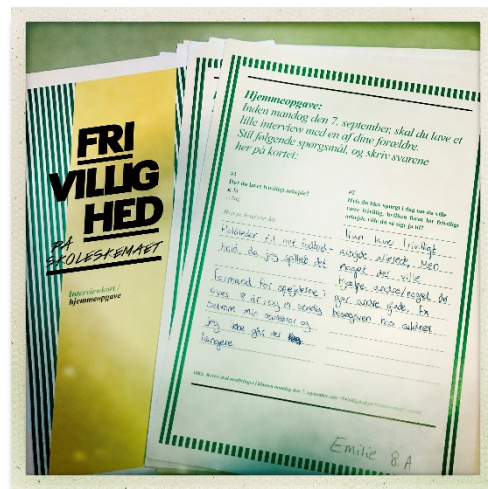 FRI
VILLIG
HED
PÅ
SKOLESKEMAET
Interviewkort /
hjemmeopgave
Hjemmeopgave:
Inden mandag den 7. september, skal du lave et
lille interview med en af dine forældre.
Stil følgende spørgsmål, og skriv svarene
her på kortet:
#1
Har du lavet frivilligt arbejde?
Ja
Nej
Holdleder til mit fodbold
hold, da jeg spillede det
Formand for spejderne i
over 8 år, og er sendes
selvom min
jeg ikke går der
længere.
#2
Hvis du blev spurgt i dag om du ville
være frivillig, hvilken form for frivilligt
arbejde ville du så sige ja til?
Hun laver frivilligt
arbejde allerede, Men
noget der ville
hjælpe andre/noget, der
gør andre glade, Ex
besøgsven hos ældre.
Emilie 8.A